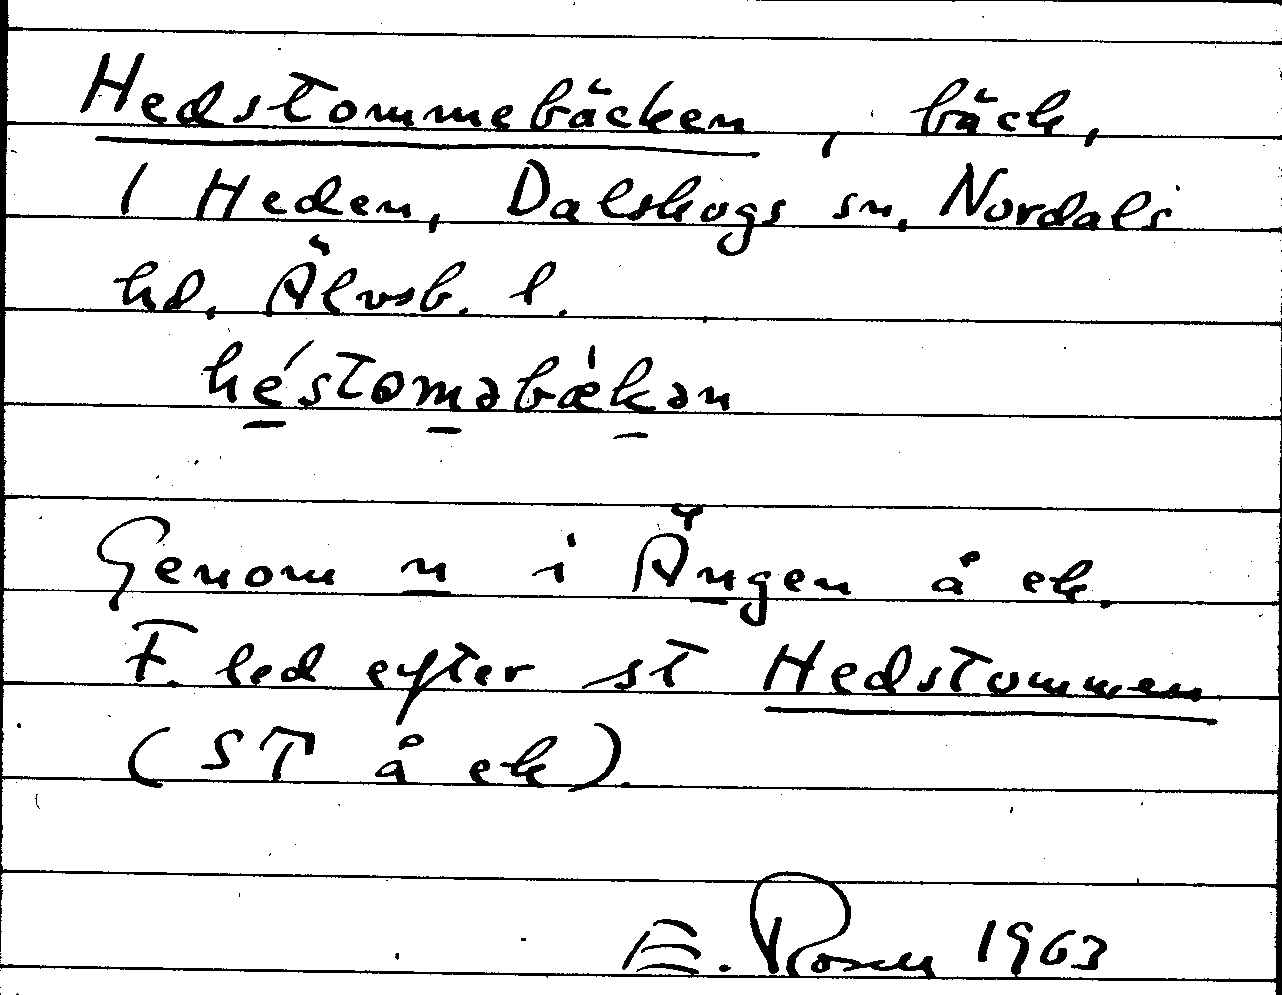 Hedstommebäcken, bäck,
1 Heden, Dalskogs sn, Nordals
hd, Älvsb. l.
héstoməbækən
Genom n i Ängen å ek.
F. led efter st Hedstommen
(ST å ek).
E. Rosen 1963